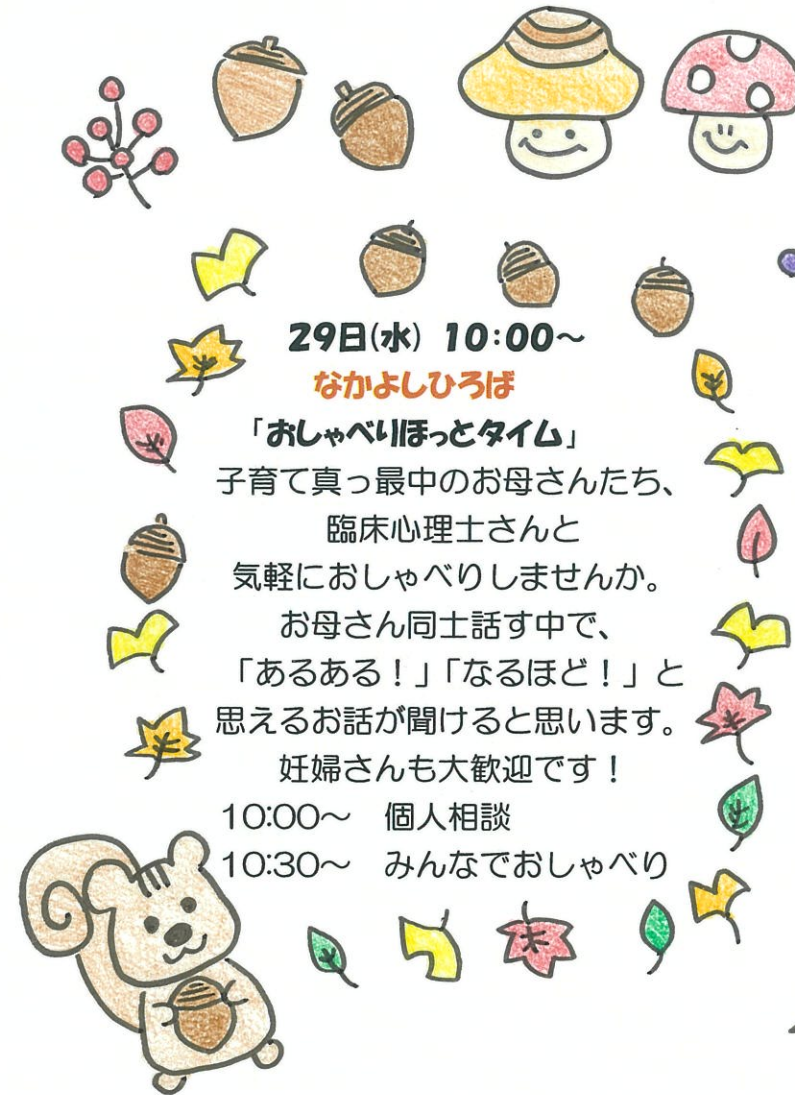 29日(水) 10:00～
なかよしひろば
「おしゃべりほっとタイム」
子育て真っ最中のお母さんたち、
臨床心理士さんと
気軽におしゃべりしませんか。
お母さん同士話す中で、
「あるある！」「なるほど！」と
思えるお話が聞けると思います。
妊婦さんも大歓迎です！
10:00～　個人相談
10:30～　みんなでおしゃべり